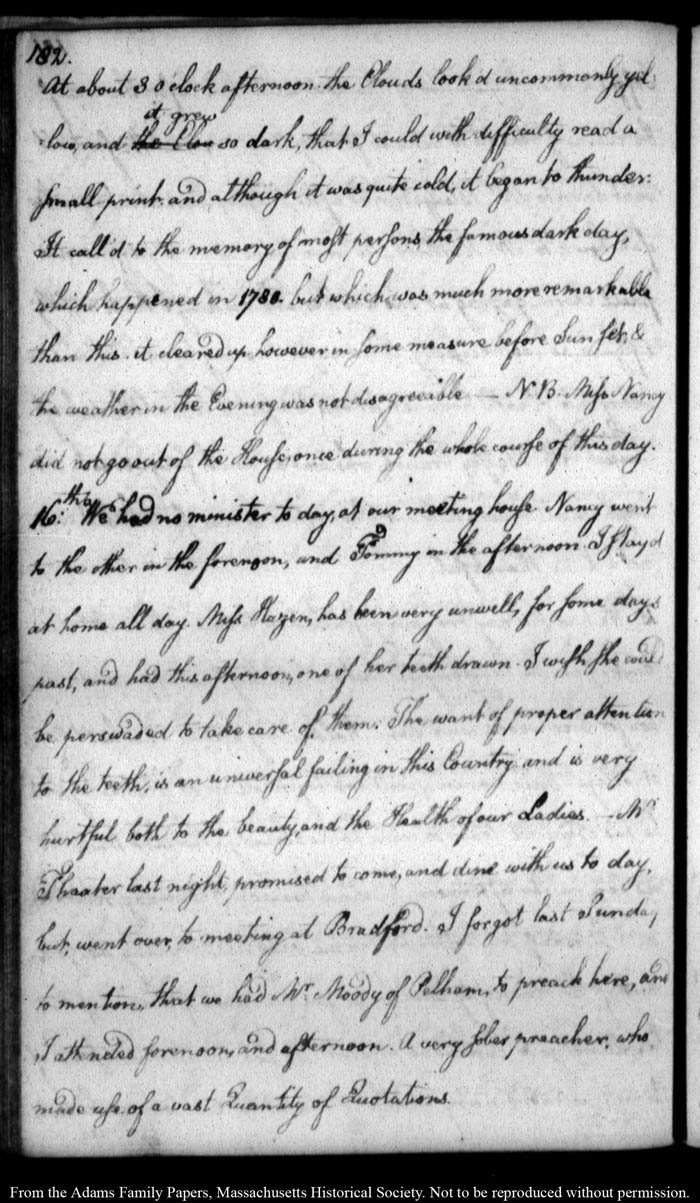 182.
At about 3 o clock afternoon the Clouds look'd uncommonly yel-
it grew
low, and the Clou so dark, that I could with difficulty read a
small print. and although it was quite cold, it began to thunder.
It call'd to the memory of most persons the famous dark day,
which happened in 1780. but which was much more remarkable
than this. it cleared up however in some measure before Sun set, &
the weather in the Evening was not disagreeable — N B. Miss Nancy
did not go out of the House, once during the whole course of this day.
16.th We had no minister to day, at our meeting house Nancy went
to the other in the forenoon, and Tommy in the afternoon. I stay'd
at home all day. Miss Hazen, has been very unwell, for some days
past, and had this afternoon, one of her teeth drawn. I wish she could
be perswaded to take care of them. The want of proper attention
to the teeth, is an universal failing in this Country and is very
hurtful both to the beauty, and the Health of our Ladies. — Mr.
Thaxter last night, promised to come, and dine with us to day,
but, went over, to meeting at Bradford. I forgot last Sunday
to mention, that we had Mr. Moody of Pelham, to preach here, and
I attended forenoon, and afternoon. A very sober preacher, who
made use of a vast Quantity of Quotations.
From the Adams Family Papers, Massachusetts Historical Society. Not to be reproduced without permission.